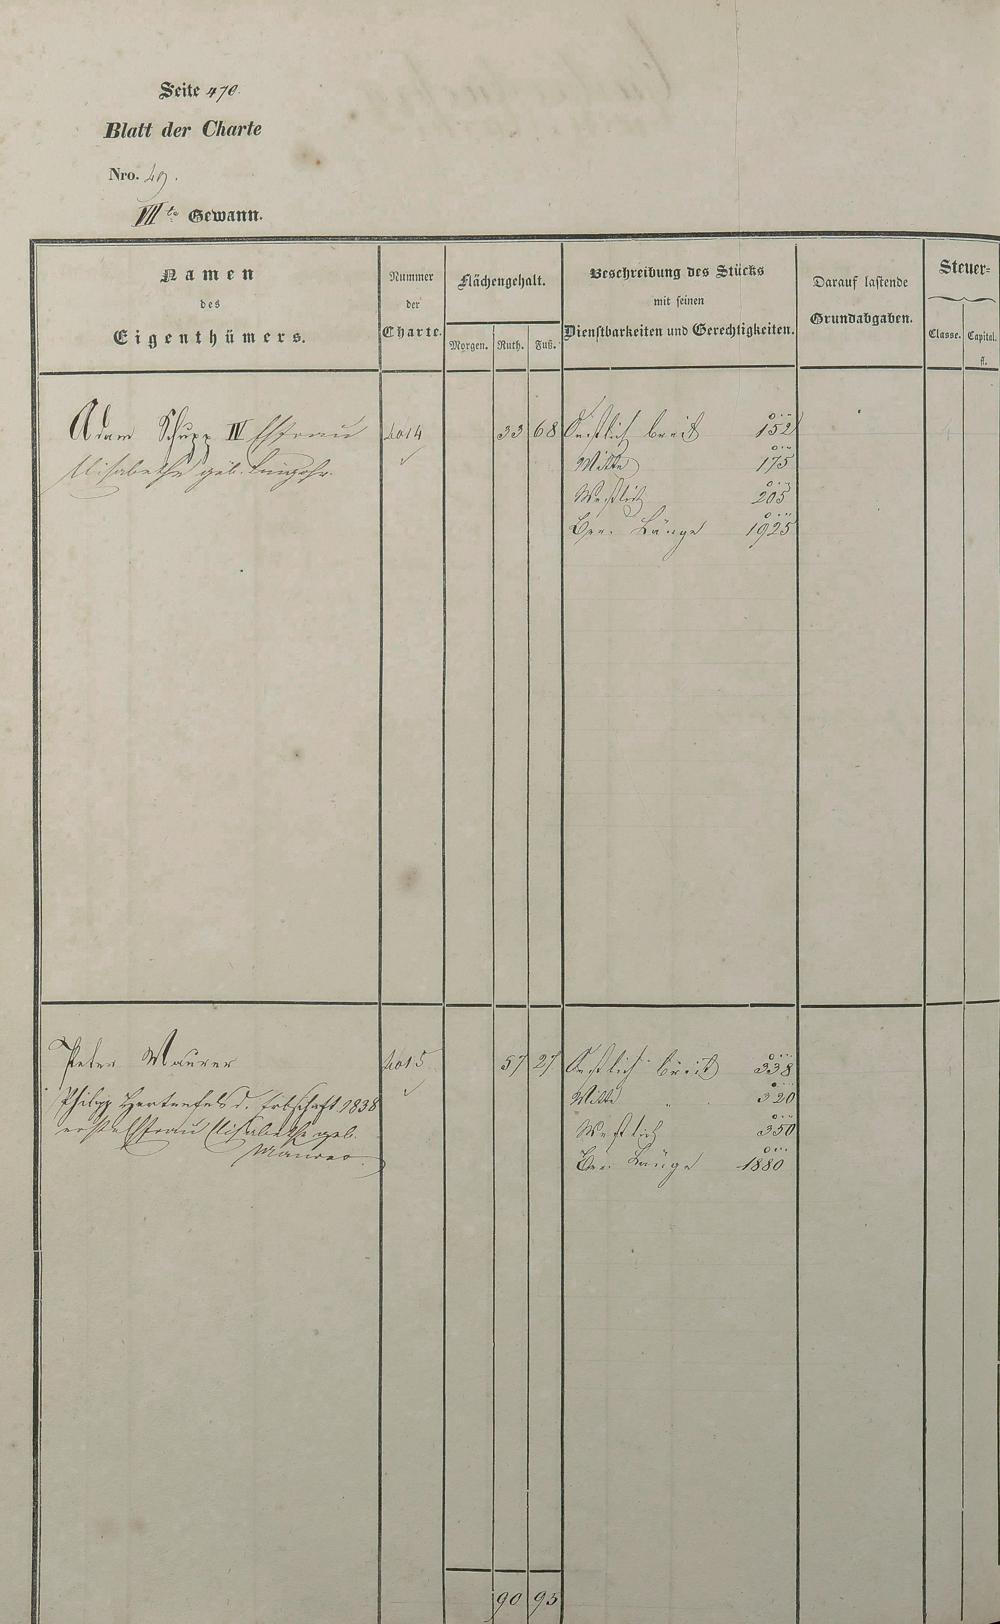 Seite 470.
Blatt der Charte
Nro. 49.
VII te Gewann.
Namen des Eigenthümers.
Nummer der Charte.
Flächengehalt.
Morgen. Ruth. Fuß.
Beschreibung des Stücks mit seinen Dienstbarkeiten und Gerechtigkeiten.
Darauf lastende Grundabgaben.
Steuer=
Classe. Capital.
fl.
Adam Schupp IV Ehefrau 4014 33 68 Oestlich breit 152
Elisabetha geb. Mitte 175
Westlich 205
Länge 1925
Peter Maurer 4015 57 27 Oestlich breit 338
Philipp Hertenfels d. Erbschaft 1838 Mitte " 320
erste Ehefrau Elisabetha geb. Westlich 350
Maurer. Länge 1880
90 95